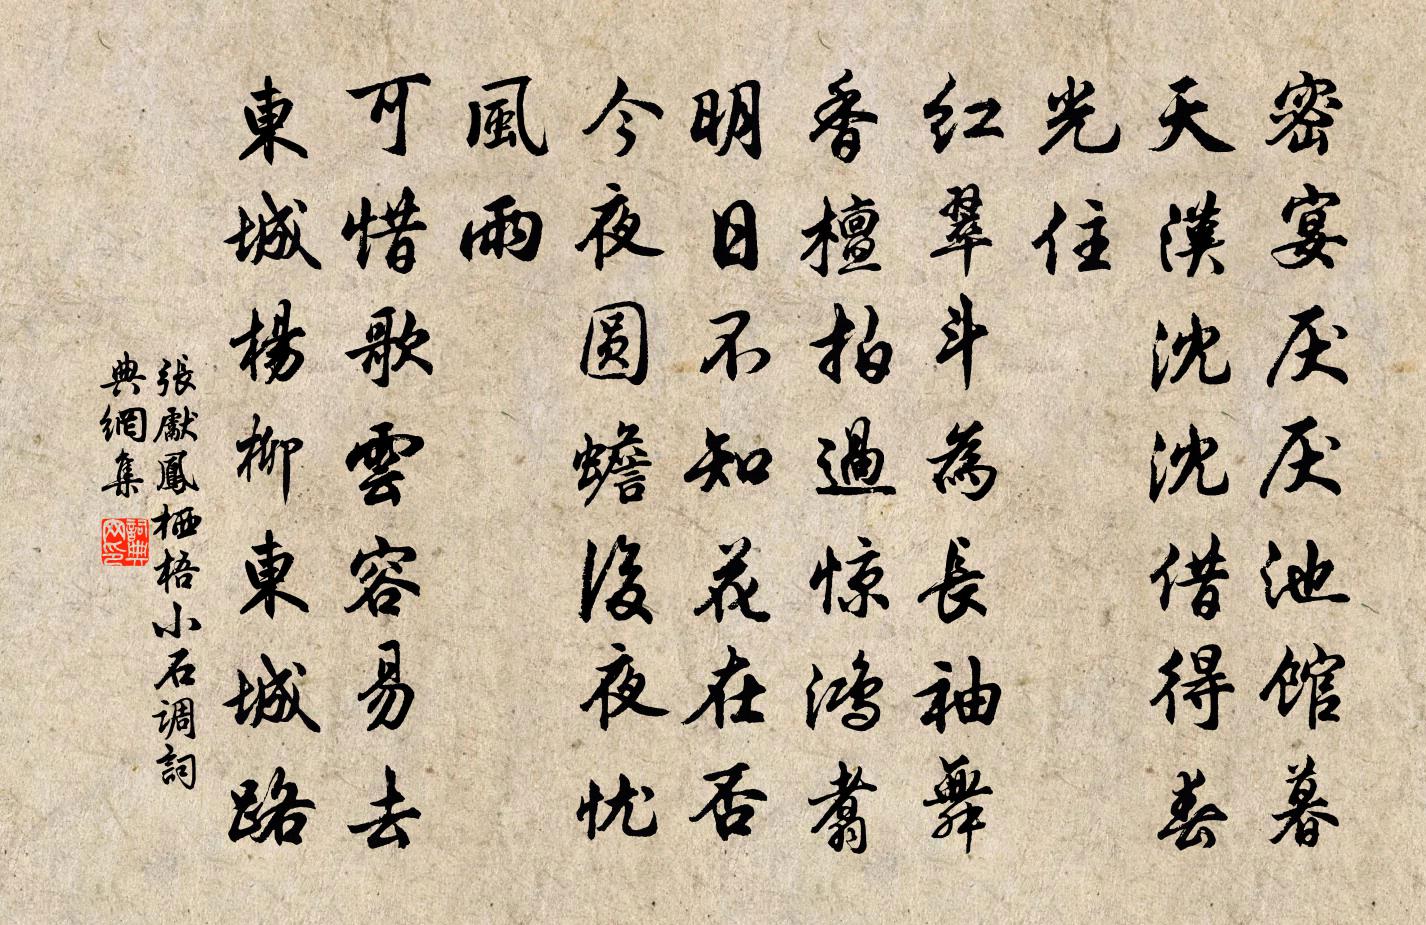 密宴厌厌池馆暮
天漢沈沈借得春
光住
红翠斗為長袖舞
香檀拍過惊鸿翥
明日不知花在否
今夜圆蟾後夜忧
風雨
可惜歌雲容易去
東城楊柳東城路
張獻鳳栖梧小石调詞
典網集
詞典
网印